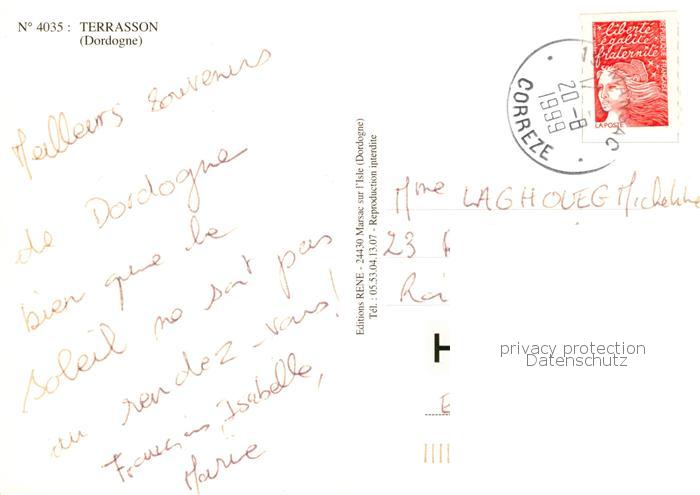 N° 4035 : TERRASSON
(Dordogne)
Meilleurs souvenirs
de Dordogne
bien que le
soleil ne soit pas
au rendez-vous!
François, Isabelle,
Marie
Editions RENE - 24430 Marsac sur l'Isle (Dordogne)
Tél. : 05.53.04.13.07 - Reproduction interdite
20-8
1999
CORREZE
liberté
égalité
fraternité
RÉPUBLIQUE FRANÇAISE
LA POSTE
Mme LAGHOUEG Micheline
23
privacy protection
Datenschutz